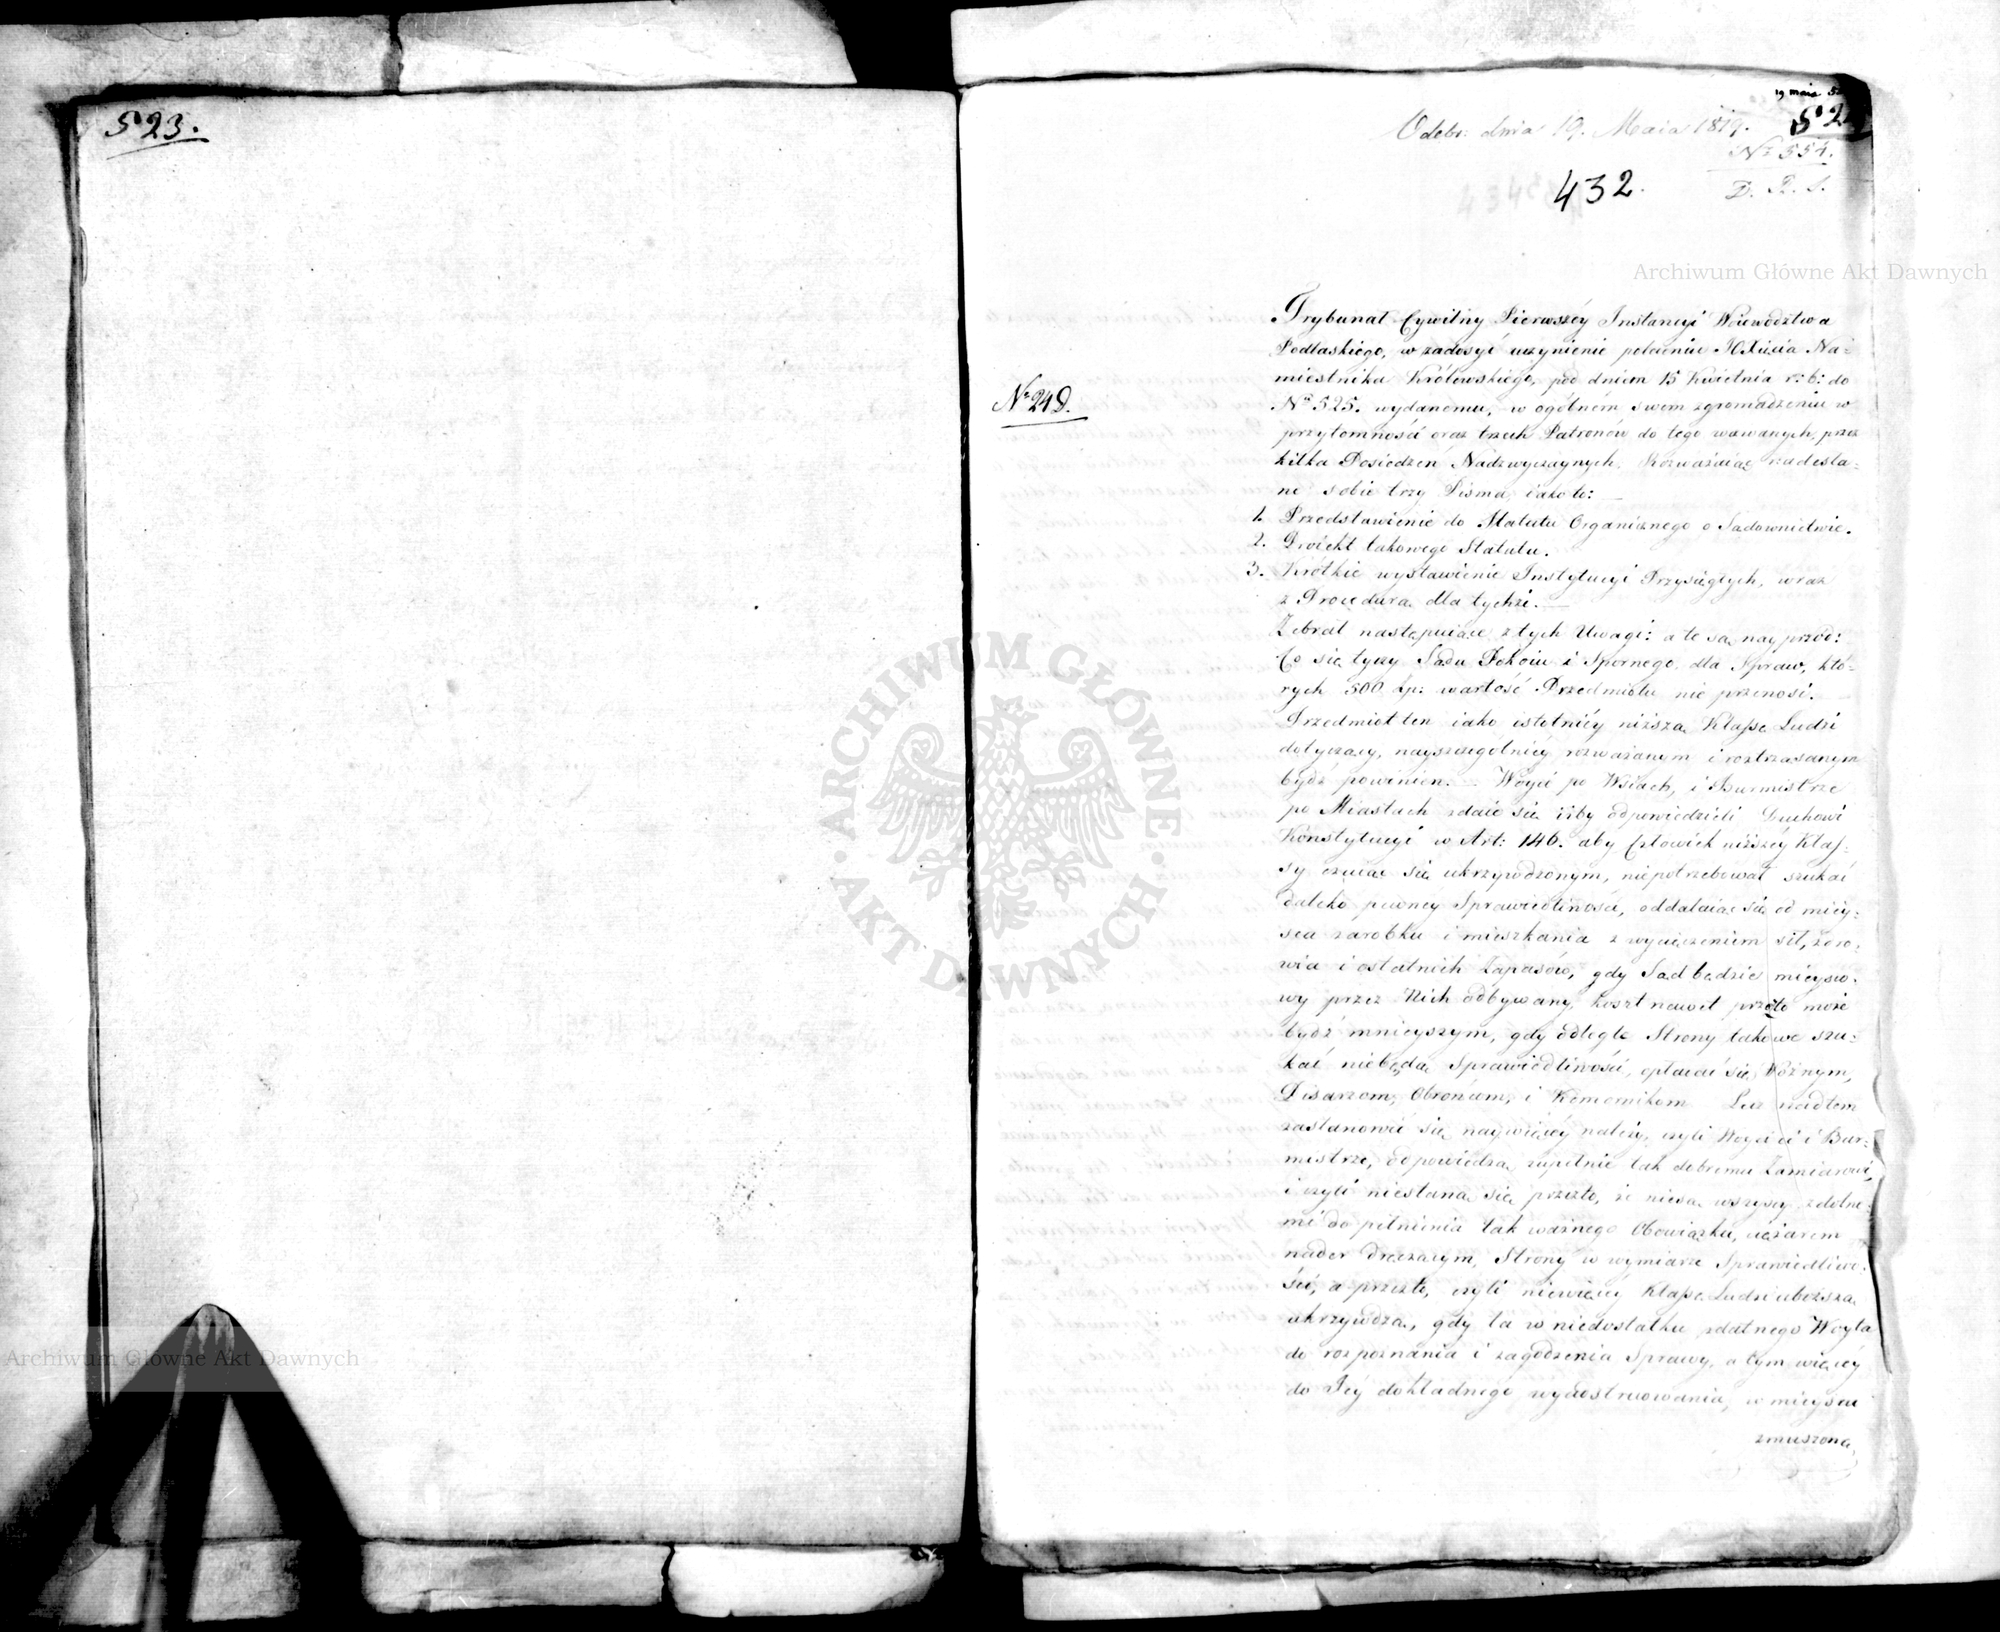 523.
19 maia
Odebr: dnia 19. Maia 1819.
52
Nr 554.
D. R. S.
432.
Nr 248.
Trybunał Cywilny Pierwszey Instancyi Woiewództwa
Podlaskiego, w zadosyć uczynienie poleceniu JOXięcia Na-
miestnika Królewskiego, pod dniem 15 Kwietnia r: b: do
No 525. wydanemu, w ogólném swem zgromadzeniu w
przytomności oraz trzech Patronów do tego wezwanych, przez
kilka Posiedzeń Nadzwyczaynych. Rozważaiąc nadesła-
ne sobie trzy Pisma, iakoto:
1. Przedstawienie do Statutu Organicznego o Sądownictwie.
2. Proiekt takowego Statutu.
3. Krótkie wystawienie Instytucyi Przysięgłych, wraz
z Procedurą dla tychże.
Zebrał następuiące z tych Uwagi: a te są nayprzód:
Co się tyczy Sądu Pokoiu i Spornego, dla Spraw, któ-
rych 500 złp: wartość Przedmiotu nie przenosi.
Przedmiot ten iako istotniéy niższą Klassę Ludzi
dotyczący, nayszczególniéy rozważanym i roztrząsanym
bydź powinien. — Woyci po Wsiach, i Burmistrze
po Miastach zdaie się iżby odpowiedzieli Duchowi
Konstytucyi w Art: 146. aby Człowiek niższéy Klas-
sy czuiąc się ukrzywdzonym, niepotrzebował szukać
daleko pewney Sprawiedliwości, oddalaiąc się od miéy-
sca zarobku i mieszkania z wycieńczeniem sił, zdro-
wia i ostatnich Zapasów, gdy Sąd będzie mieysco-
wy przez Nich odbywany, koszt nawet przeto może
bydź mnieyszym, gdy odległe Strony takowe szu-
kać niebędą Sprawiedliwości, opłacać się Woźnym,
Pisarzom, Obrońcom, i Komornikom. Lecz nadtem
zastanowić się naywięcéy należy, czyli Woyci i Bur-
mistrze, odpowiedzą zupełnie tak dobremu Zamiarowi,
i czyli niestaną się przezto, że niesą wszyscy zdolne-
mi do pełnienia tak ważnego Obowiązku, ciężarem
nader dręczącym, Strony w wymiarze Sprawiedliwo-
ści, a przezto, czyli niewięcéy Klassę Ludzi uboższą
ukrzywdzą, gdy ta w niedostatku zdatnego Woyta
do rozpoznania i zagodzenia Sprawy, a tym więcéy
do Jéy dokładnego wyinstruowania, w mieyscu
zmuszoną
Archiwum Główne Akt Dawnych
ARCHIWUM GŁÓWNE · AKT DAWNYCH ·
Archiwum Główne Akt Dawnych